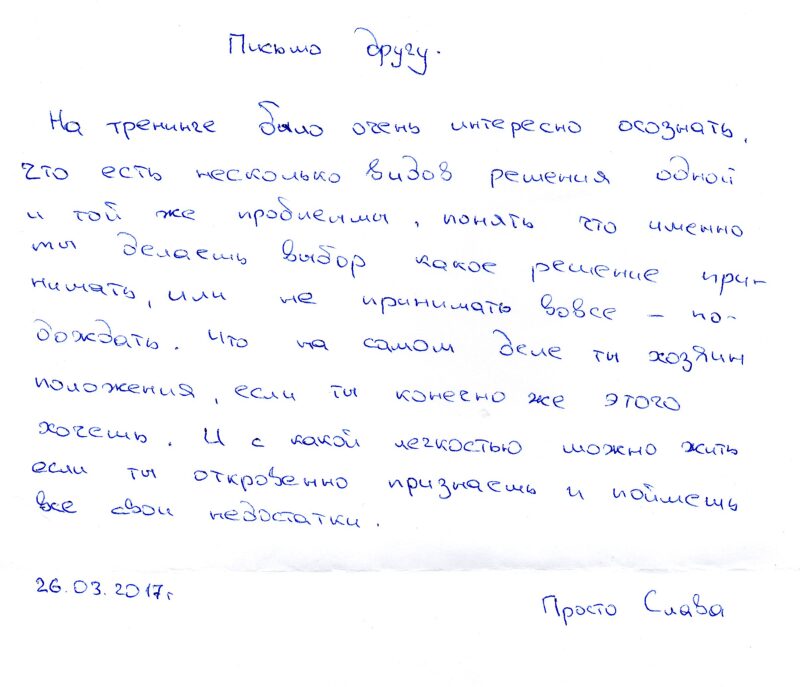 Письмо другу.
На тренинге было очень интересно осознать,
что есть несколько видов решения одной
и той же проблеммы, понять что именно
ты делаешь выбор какое решение при-
нимать, или не принимать вовсе – по-
дождать. Что на самом деле ты хозяин
положения, если ты конечно же этого
хочешь. И с какой легкостью можно жить
если ты откровенно признаешь и поймешь
все свои недостатки.
26.03.2017г
Просто Слава